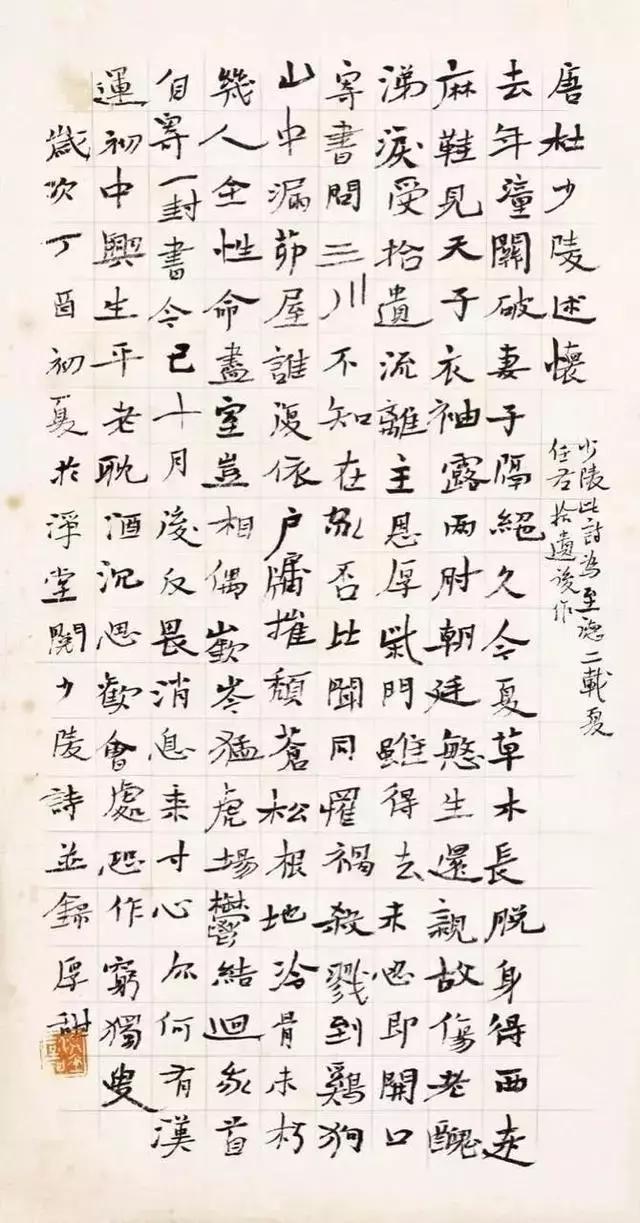 唐杜少陵述懷
少陵此詩為至德二載夏
任右拾遺後作
去年潼關破妻子隔絕久今夏草木長脫身得西走
麻鞋見天子衣袖露兩肘朝廷慜生還親故傷老醜
涕淚受拾遺流離主恩厚柴門雖得去未忍即開口
寄書問三川不知在家否比聞同罹禍殺戮到鷄狗
山中漏茆屋誰復依户牖摧頹蒼松根地冷骨未朽
幾人全性命盡室豈相偶嶔岑猛虎場鬱結迴我首
自寄一封書今已十月後反畏消息来寸心亦何有漢
運初中興生平老耽酒沉思歡會處恐作窮獨叟
歲次丁酉初夏於淨堂閱少陵詩並錄厚甜